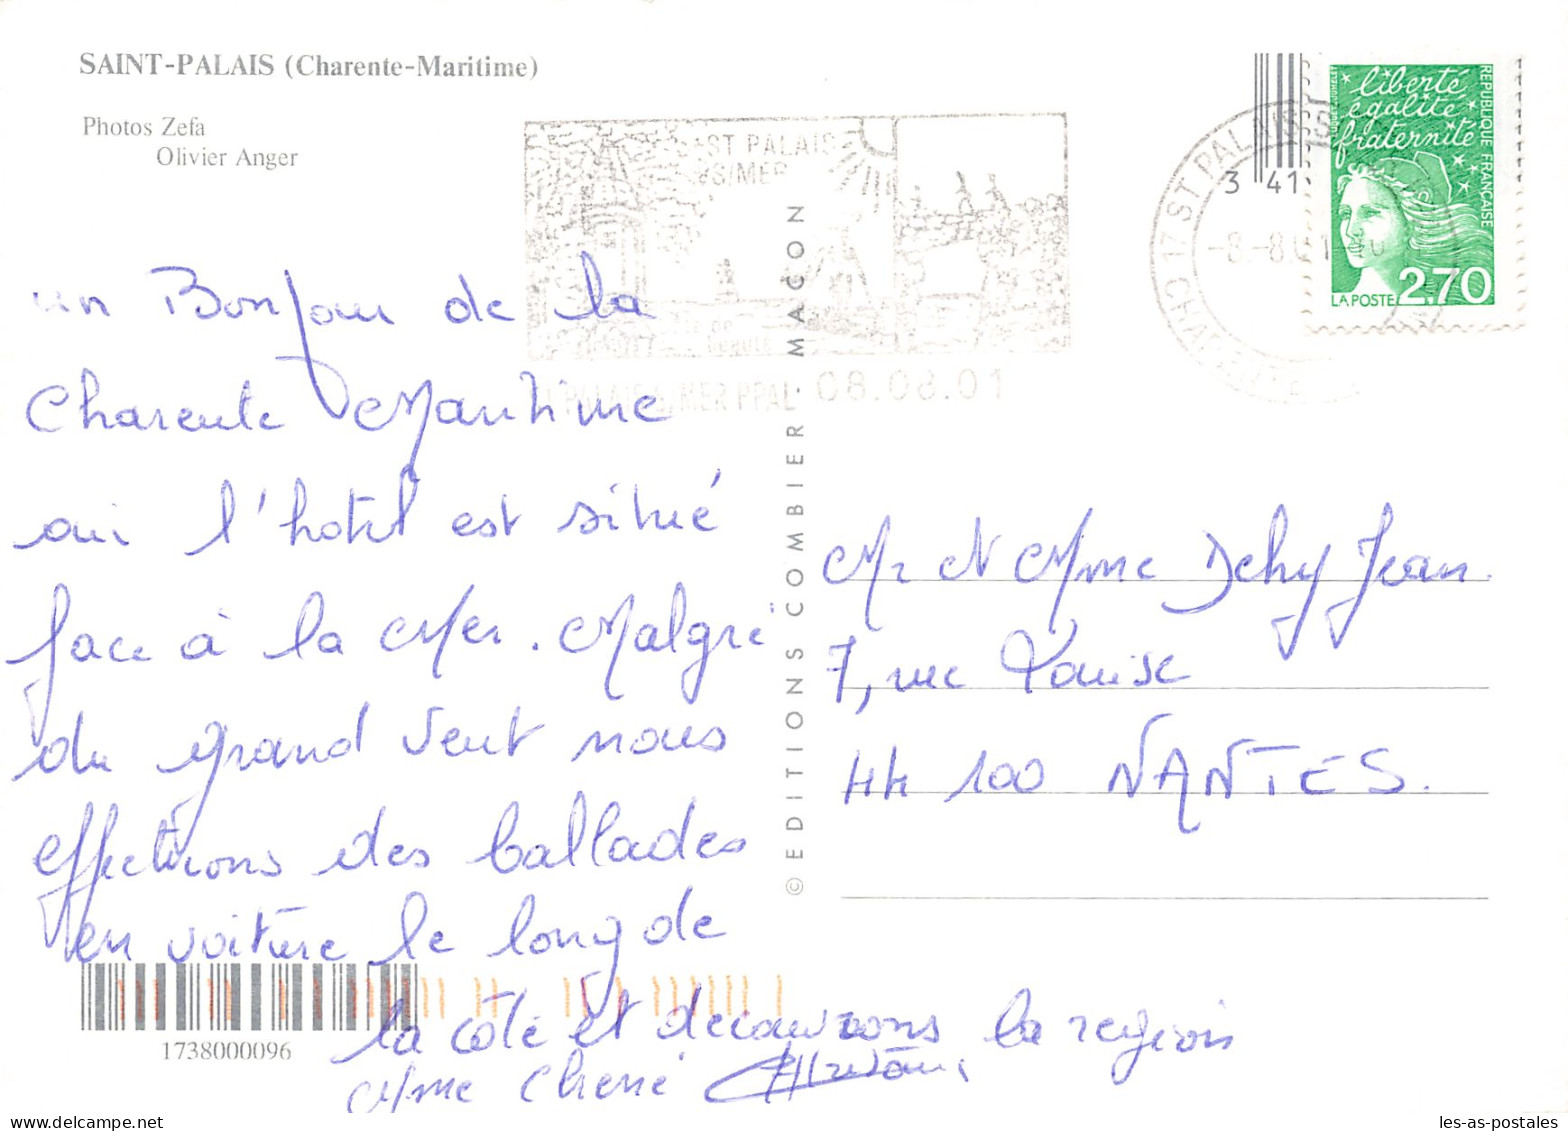 SAINT-PALAIS (Charente-Maritime)
Photos Zefa
Olivier Anger
ST PALAIS
S/MER
PALAIS S/MER PPAL 08.08.01
3 41
17 ST PALAIS S
8-8.01
liberté
égalité
fraternité
RÉPUBLIQUE FRANÇAISE
LA POSTE 2,70
un Bonjour de la
Charente Maritime
oui l'hotel est situé
face à la Mer. Malgré
du grand vent nous
effectuons des ballades
en voiture le long de
la côte et decouvrons la region
Mme Chené
© EDITIONS COMBIER MACON
Mr et Mme Dehy Jean.
7, rue Louise
44 100 NANTES.
1738000096
les-as-postales